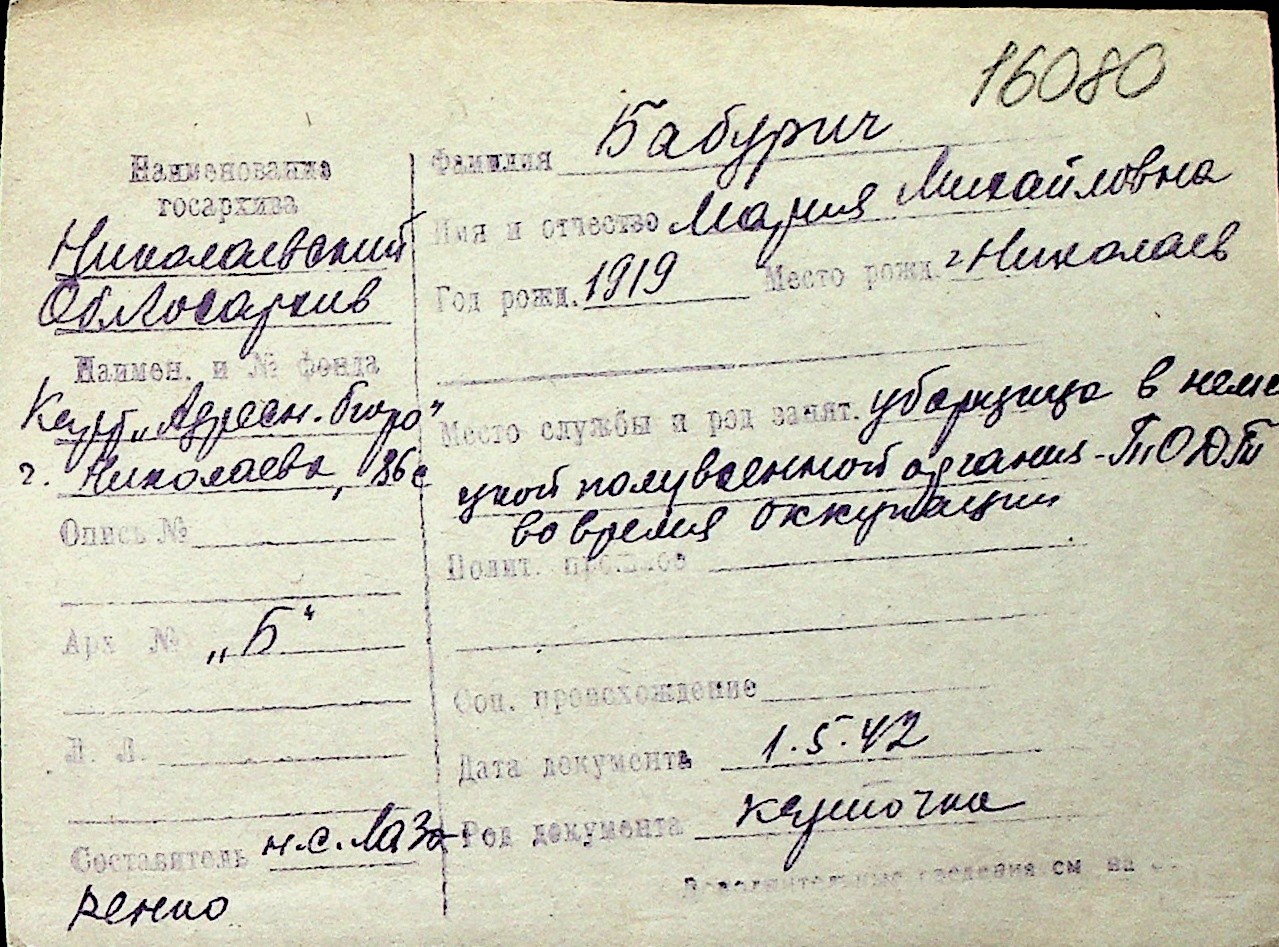 16080
Наименование
госархива
Николаевский
Облгосархив
Наимен. и № фонда
Карт „Адресн. бюро“
г. Николаева,
Опись №
Арх №
„Б“
Л. Л.
Составитель н.с. Лаза-
ренко
Фамилия Бабурич
Имя и отчество Мария Михайловна
Год рожд. 1919 Место рожд. г Николаев
Место службы и род занят. уборщица в неме
цкой полувоенной органия - ТОДТ
во время оккупации
Полит. прошлое
Соц. происхождение
Дата документа 1.5.42
Род документа карточка
Дополнительные сведения см на